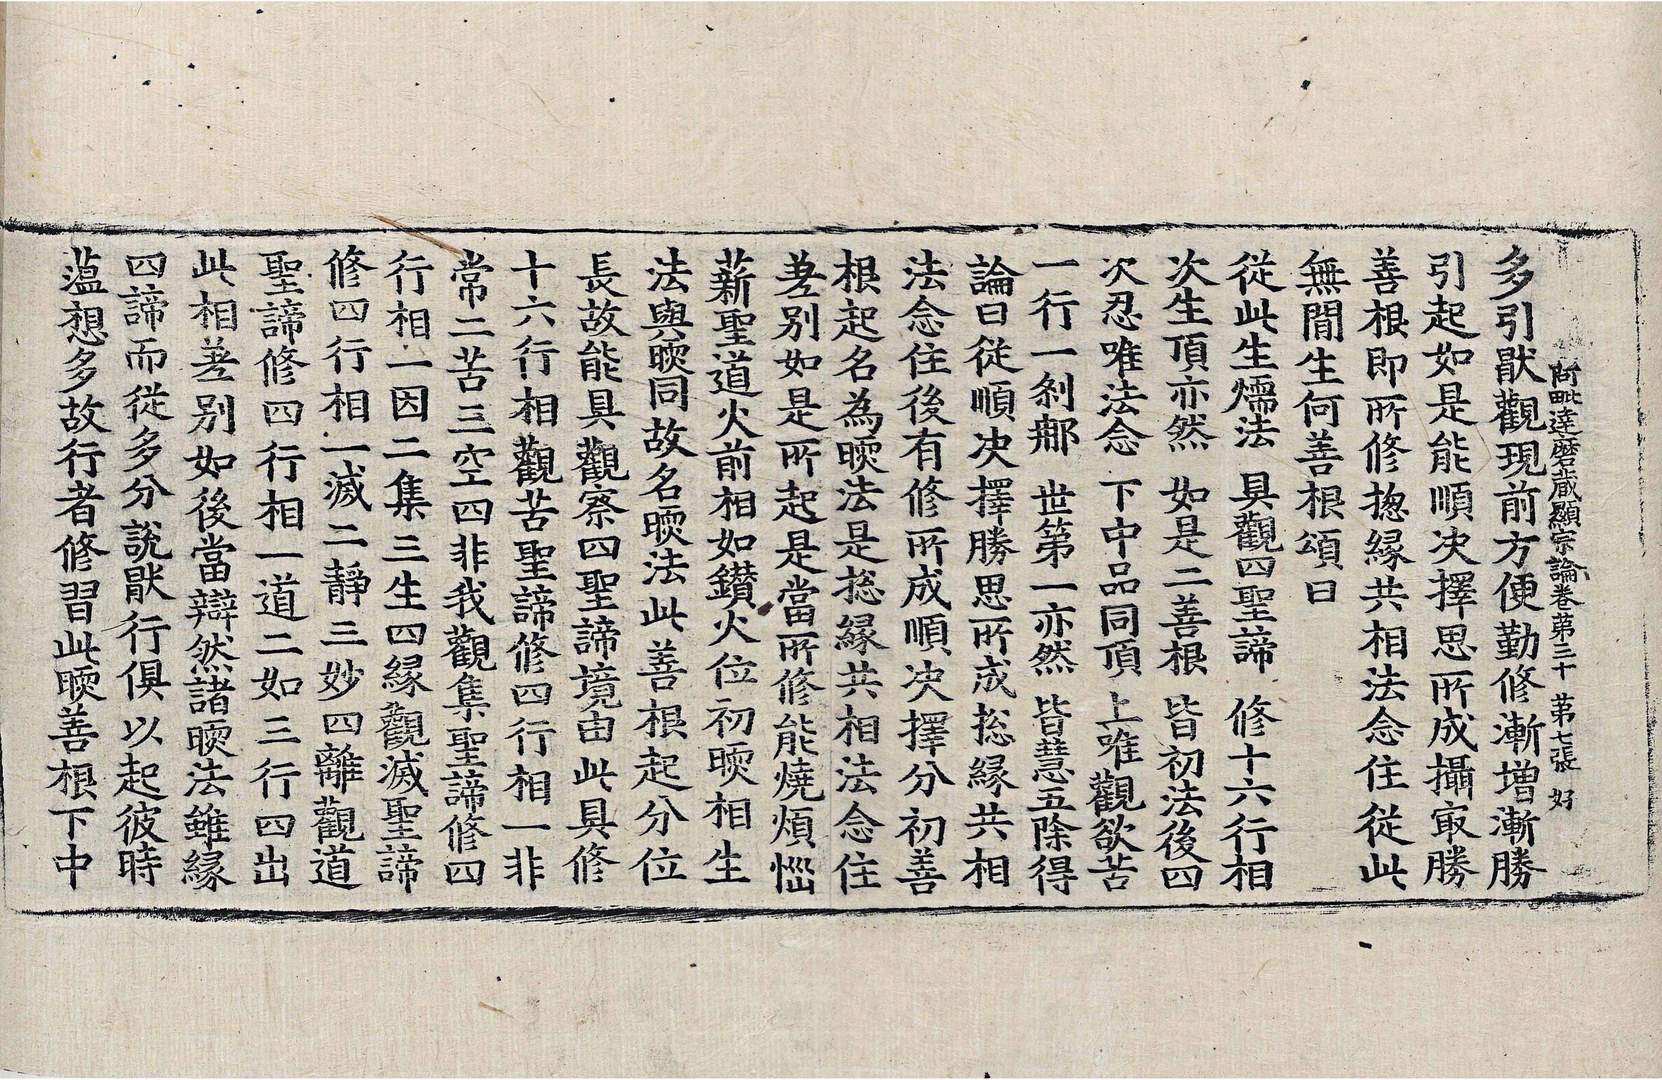 阿毗達磨藏顯宗論卷第三十 第七張 好
多引猒觀現前方便勤修漸增漸勝
引起如是能順決擇思所成攝㝡勝
善根即所修捴緣共相法念住從此
無閒生何善根頌曰
從此生煗法 具觀四聖諦 修十六行相
次生頂亦然 如是二善根 皆初法後四
次忍唯法念 下中品同頂 上唯觀欲苦
一行一刹那 世第一亦然 皆慧五除得
論曰從順决擇勝思所成捴緣共相
法念住後有修所成順决擇分初善
根起名為暎法是捴緣共相法念住
差別如是所起是當所修能燒煩惱
薪聖道火前相如鑽火位初暎相生
法與暎同故名暎法此善根起分位
長故能具觀察四聖諦境由此具修
十六行相觀苦聖諦修四行相一非
常二苦三空四非我觀集聖諦修四
行相一因二集三生四緣觀滅聖諦
修四行相一滅二靜三妙四離觀道
聖諦修四行相一道二如三行四出
此相差別如後當辯然諸暎法雖緣
四諦而從多分說猒行俱以起彼時
蕰想多故行者修習此暎善根下中